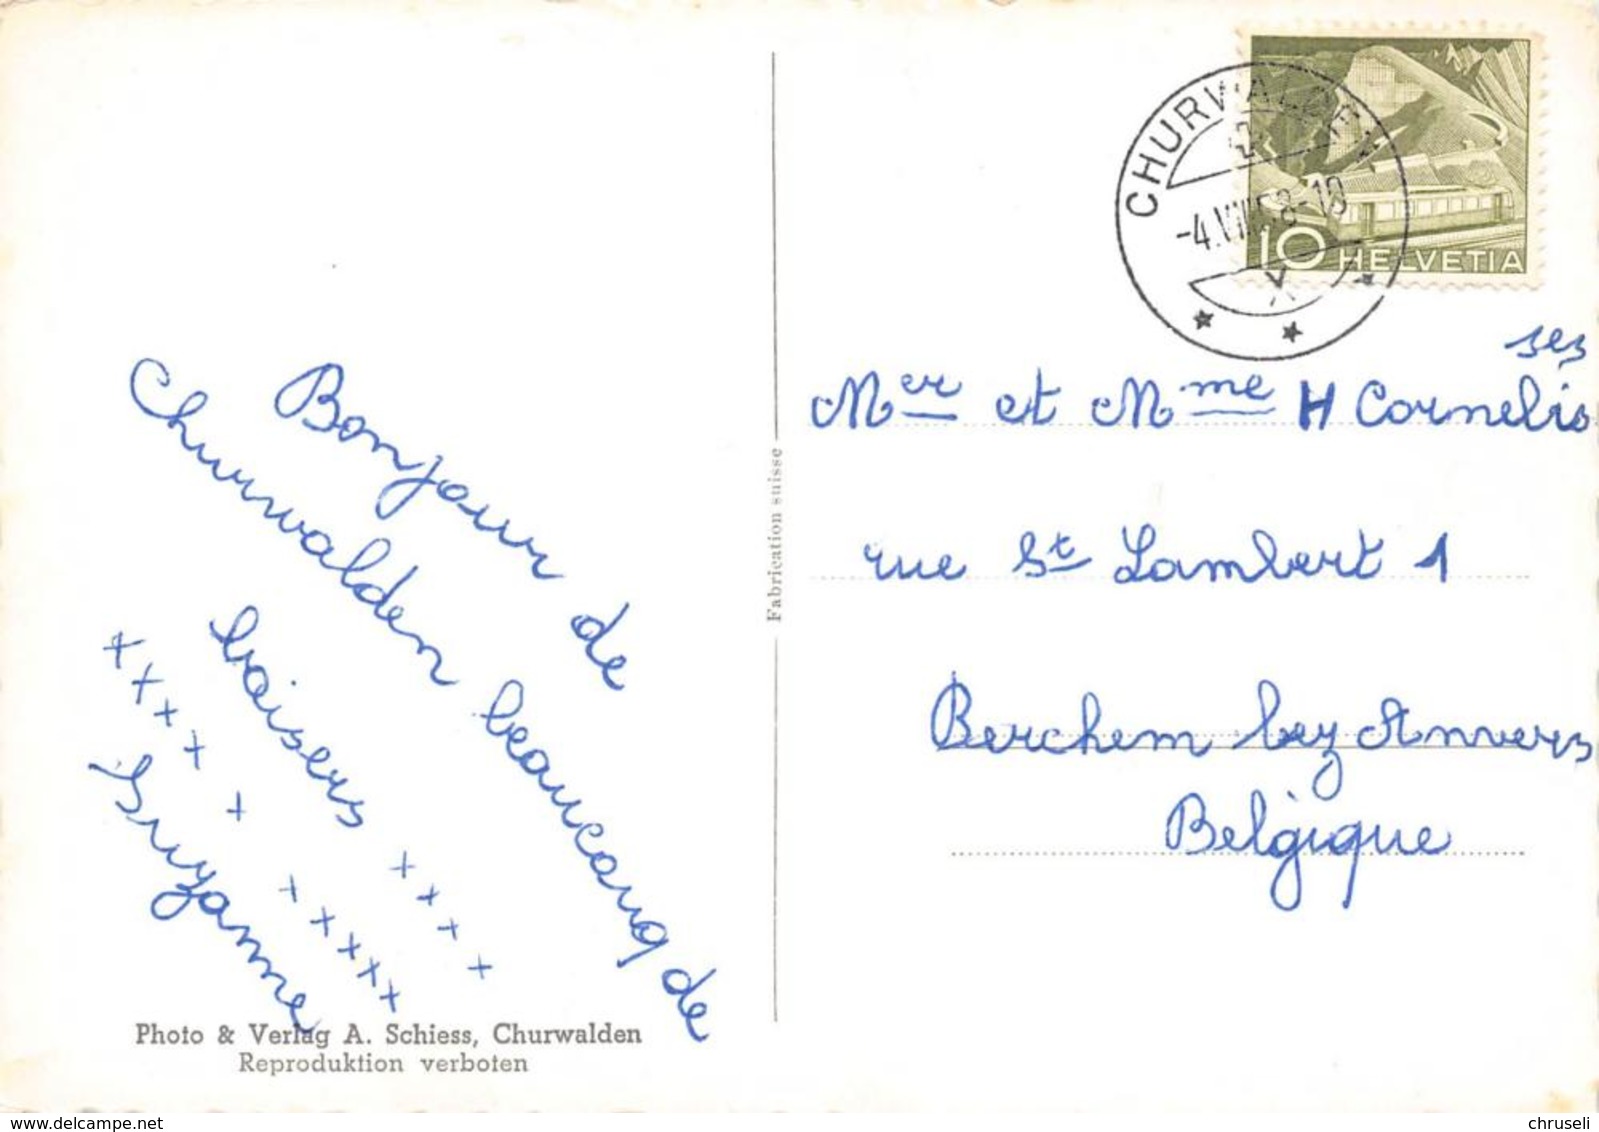 CHURWALDEN
-4.VIII.58-18
10 HELVETIA
Bonjour de
Churwalden beaucouq de
baisers ++++
+++++ +++++
Suzanne
Photo & Verlag A. Schiess, Churwalden
Reproduktion verboten
Fabrication suisse
ses
Mer et Mme H Cornelis
rue St Lambert 1
Berchem lez Anvers
Belgique
www.delcampe.net
chruseli